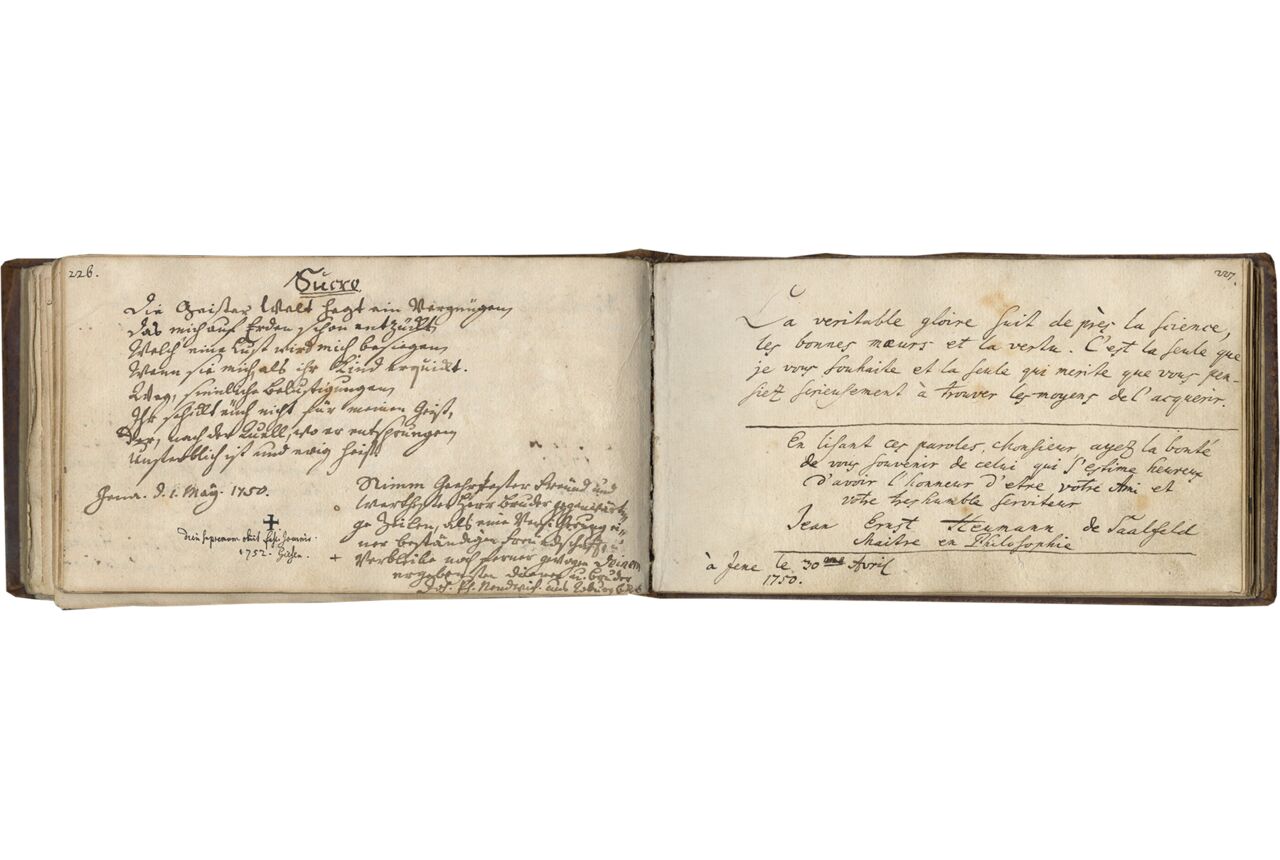 226.
Sucro.
Die Geister Welt hegt ein Vergnügen,
Das mich auf Erden schon entzückt,
Welch eine Lust wird mich besiegen,
Wenn sie mich als ihr Kind erquickt.
Weg, sinnliche Belustigungen,
Ihr schickt euch nicht für meinen Geist,
Der, nach der Quell, wo er entsprungen,
Unsterblich ist und ewig heist
Jena. d. 1. May. 1750.
Nimm Geehrtester Freund und
werthester Herr Bruder gegenwärti-
ge Zeilen, als eine Versicherung ei-
ner beständigen Freundschafft
Verbleibe noch ferner gewogen Deinem
ergebensten Diener u. Bruder
aus Coburg
Diem supremum obiit
1752.
227.
La veritable gloire suit de près la science,
les bonnes mœurs et la vertu. C'est la seule que
je vous souhaite et la seule qui merite que vous pen-
siez serieusement à trouver les moyens de l'acquerir.
En lisant ces paroles, Monsieur ayez la bonté
de vous souvenir de celui qui s'estime heureux
d'avoir l'honneur d'etre votre Ami et
votre tres humble serviteur
Jean Ernst Heumann de Saalfeld
Maitre en Philosophie
à Jene le 30me Avril
1750.